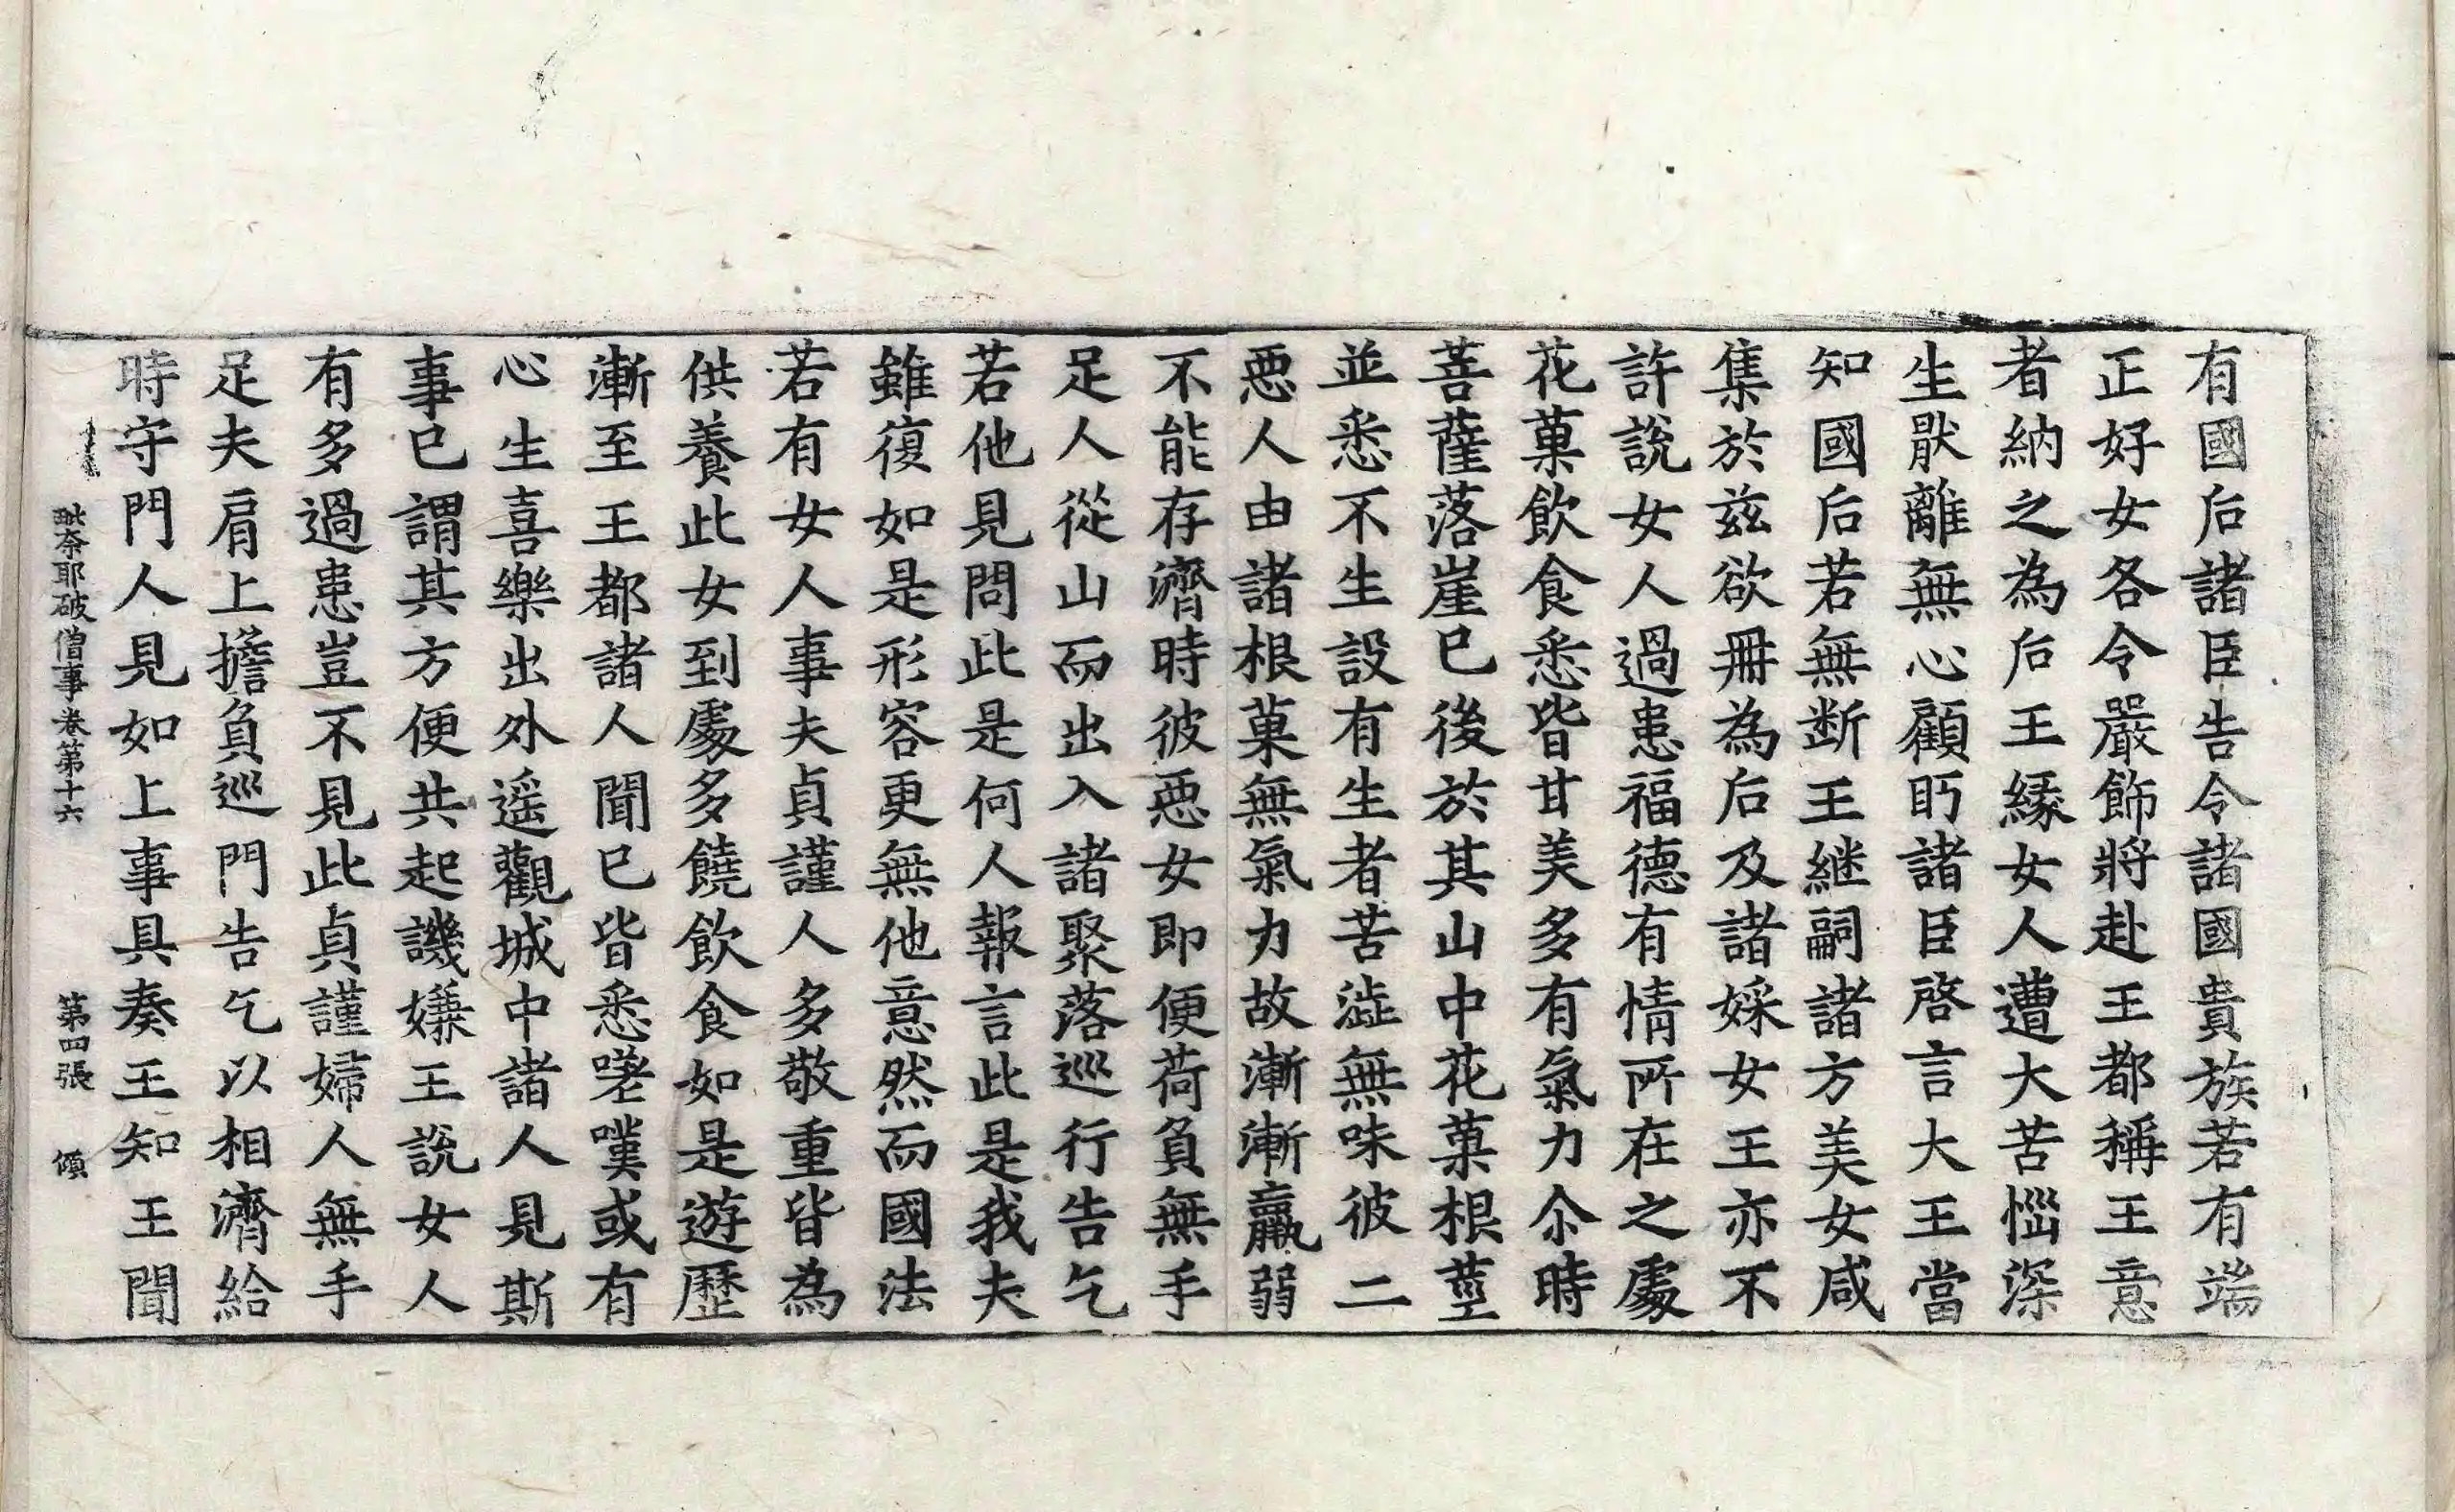 有國后諸臣告令諸國貴族若有端
正好女各令嚴飾將赴王都稱王意
者納之為后王緣女人遭大苦惱深
生猒離無心顧眄諸臣啓言大王當
知國后若無断王継嗣諸方美女咸
集於兹欲冊為后及諸婇女王亦不
許說女人過患福德有情所在之處
花菓飲食悉皆甘美多有氣力尒時
菩薩落崖已後於其山中花菓根莖
並悉不生設有生者苦澁無味彼二
惡人由諸根菓無氣力故漸漸羸弱
不能存濟時彼惡女即便荷負無手
足人從山而出入諸聚落巡行告乞
若他見問此是何人報言此是我夫
雖復如是形容更無他意然而國法
若有女人事夫貞謹人多敬重皆為
供養此女到處多饒飲食如是遊歷
漸至王都諸人聞已皆悉嗟嘆或有
心生喜樂出外遥觀城中諸人見斯
事已謂其方便共起譏嫌王說女人
有多過患豈不見此貞謹婦人無手
足夫肩上擔負巡門告乞以相濟給
時守門人見如上事具奏王知王聞
毗奈耶破僧事卷第十六 第四張 傾